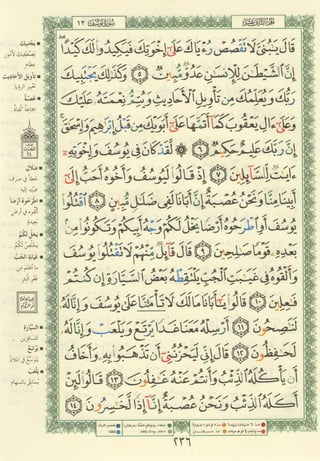 سورة يوسف ١٢
قَالَ يَٰبُنَىَّ لَا تَقْصُصْ رُءْيَاكَ عَلَىٰٓ إِخْوَتِكَ فَيَكِيدُوا۟ لَكَ كَيْدًا
إِنَّ ٱلشَّيْطَٰنَ لِلْإِنسَٰنِ عَدُوٌّ مُّبِينٌ ٥ وَكَذَٰلِكَ يَجْتَبِيكَ
رَبُّكَ وَيُعَلِّمُكَ مِن تَأْوِيلِ ٱلْأَحَادِيثِ وَيُتِمُّ نِعْمَتَهُۥ عَلَيْكَ
وَعَلَىٰٓ ءَالِ يَعْقُوبَ كَمَآ أَتَمَّهَا عَلَىٰٓ أَبَوَيْكَ مِن قَبْلُ إِبْرَٰهِيمَ وَإِسْحَٰقَ
إِنَّ رَبَّكَ عَلِيمٌ حَكِيمٌ ٦ لَّقَدْ كَانَ فِى يُوسُفَ وَإِخْوَتِهِۦٓ
ءَايَٰتٌ لِّلسَّآئِلِينَ ٧ إِذْ قَالُوا۟ لَيُوسُفُ وَأَخُوهُ أَحَبُّ إِلَىٰٓ
أَبِينَا مِنَّا وَنَحْنُ عُصْبَةٌ إِنَّ أَبَانَا لَفِى ضَلَٰلٍ مُّبِينٍ ٨ ٱقْتُلُوا۟
يُوسُفَ أَوِ ٱطْرَحُوهُ أَرْضًا يَخْلُ لَكُمْ وَجْهُ أَبِيكُمْ وَتَكُونُوا۟ مِنۢ
بَعْدِهِۦ قَوْمًا صَٰلِحِينَ ٩ قَالَ قَآئِلٌ مِّنْهُمْ لَا تَقْتُلُوا۟ يُوسُفَ
وَأَلْقُوهُ فِى غَيَٰبَتِ ٱلْجُبِّ يَلْتَقِطْهُ بَعْضُ ٱلسَّيَّارَةِ إِن كُنتُمْ
فَٰعِلِينَ ١٠ قَالُوا۟ يَٰٓأَبَانَا مَا لَكَ لَا تَأْمَ۫نَّا عَلَىٰ يُوسُفَ وَإِنَّا لَهُۥ
لَنَٰصِحُونَ ١١ أَرْسِلْهُ مَعَنَا غَدًا يَرْتَعْ وَيَلْعَبْ وَإِنَّا لَهُۥ
لَحَٰفِظُونَ ١٢ قَالَ إِنِّى لَيَحْزُنُنِىٓ أَن تَذْهَبُوا۟ بِهِۦ وَأَخَافُ
أَن يَأْكُلَهُ ٱلذِّئْبُ وَأَنتُمْ عَنْهُ غَٰفِلُونَ ١٣ قَالُوا۟ لَئِنْ
أَكَلَهُ ٱلذِّئْبُ وَنَحْنُ عُصْبَةٌ إِنَّآ إِذًا لَّخَٰسِرُونَ ١٤
يجتبيك
تأويل الأحاديث
عصبة
ضلال
اطرحوه أرضا
يخل لكم
غيابت الجب
السيارة
يرتع
يلعب
٢٣٦